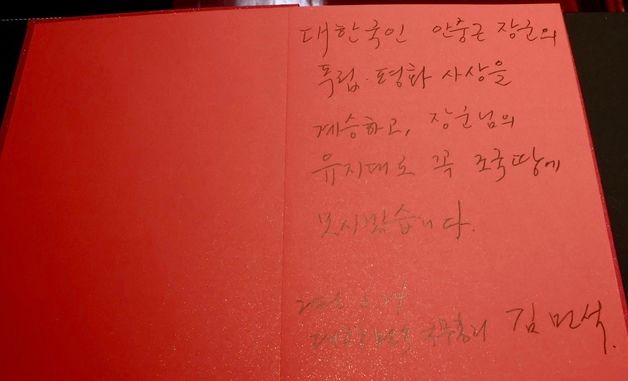 대한국인 안중근 장군의
독립·평화 사상을
계승하고, 장군님의
유지대로 꼭 조국땅에
모시겠습니다.
대한민국 국무총리 김민석.